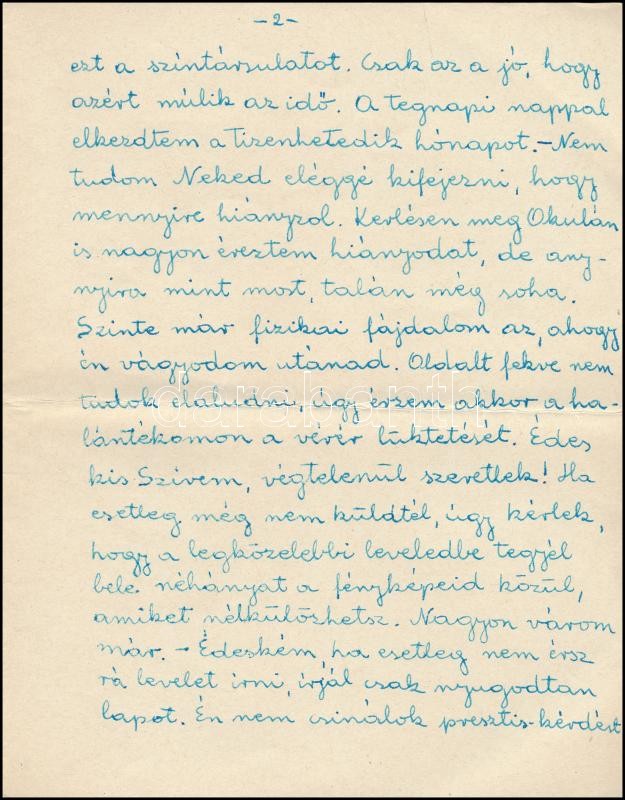 -2-
ezt a színtársulatot. Csak az a jó, hogy
azért múlik az idő. A tegnapi nappal
elkezdtem a Tizenhetedik hónapot. - Nem
tudom Neked eléggé kifejezni, hogy
mennyire hiányzol. Kerlésen meg Okulán
is nagyon éreztem hiányodat, de any-
nyira mint most, talán még soha.
Szinte már fizikai fájdalom az, ahogy
én vágyodom utánad. Oldalt fekve nem
tudok elaludni, úgy érzem apkor a ha-
lántékomon a vérér lüktetését. Édes
kis Szívem, végtelenül szeretlek! Ha
esetleg még nem küldtél, úgy kérlek,
hogy a legközelebbi leveledbe tegyél
bele néhányat a fényképeid közül,
amiket nélkülözhetsz. Nagyon várom
már. - Édeském, ha esetleg nem érsz
rá levelet írni, írjál csak nyugodtan
lapot. Én nem csinálok presztis-kérdést
darabanth